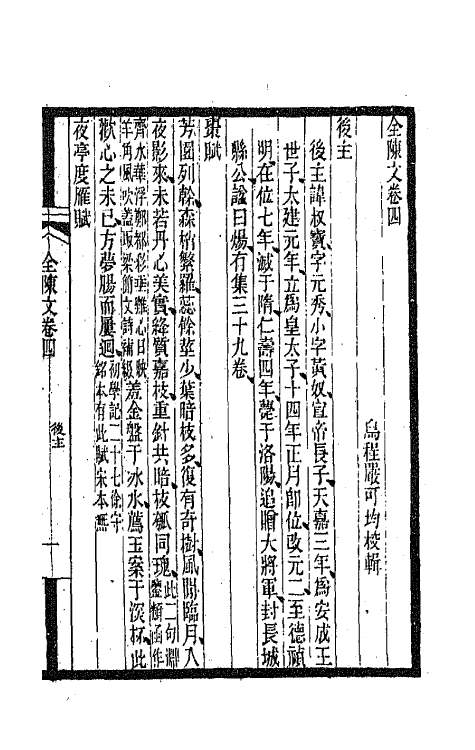 全陳文卷四
烏程嚴可均校輯
後主
後主諱叔寶、字元秀、小字黃奴、宣帝長子、天嘉三年、爲安成王
世子、太建元年、立爲皇太子、十四年正月卽位、改元二、至德禎
明、在位七年、滅于隋、仁壽四年、薨于洛陽、追贈大將軍、封長城
縣公、謚曰煬、有集三十九卷、
棗賦
芳園列榦、森梢繁羅、蕊餘莖少、葉暗枝多、復有奇樹、風間臨月、入
夜影來、未若丹心美實、絳質嘉枝、重針共暗、枝瓠同瑰、此二句淵鑒類函作
齊水華浮、鄴都彩垂、雞心日映、羊角風吹、蓋取梁簡文詩補綴 羞金盤于冰水、薦玉案于淡杯、此
歡心之未已、方夢腸而屢迴、初學記二十七、徐守銘本有此賦、宋本無
夜亭度雁賦
全陳文卷四
後主
一